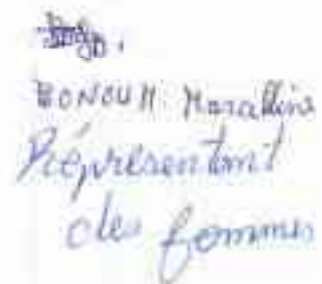 BONOU H. Marcelline
Réprésentant
des femmes